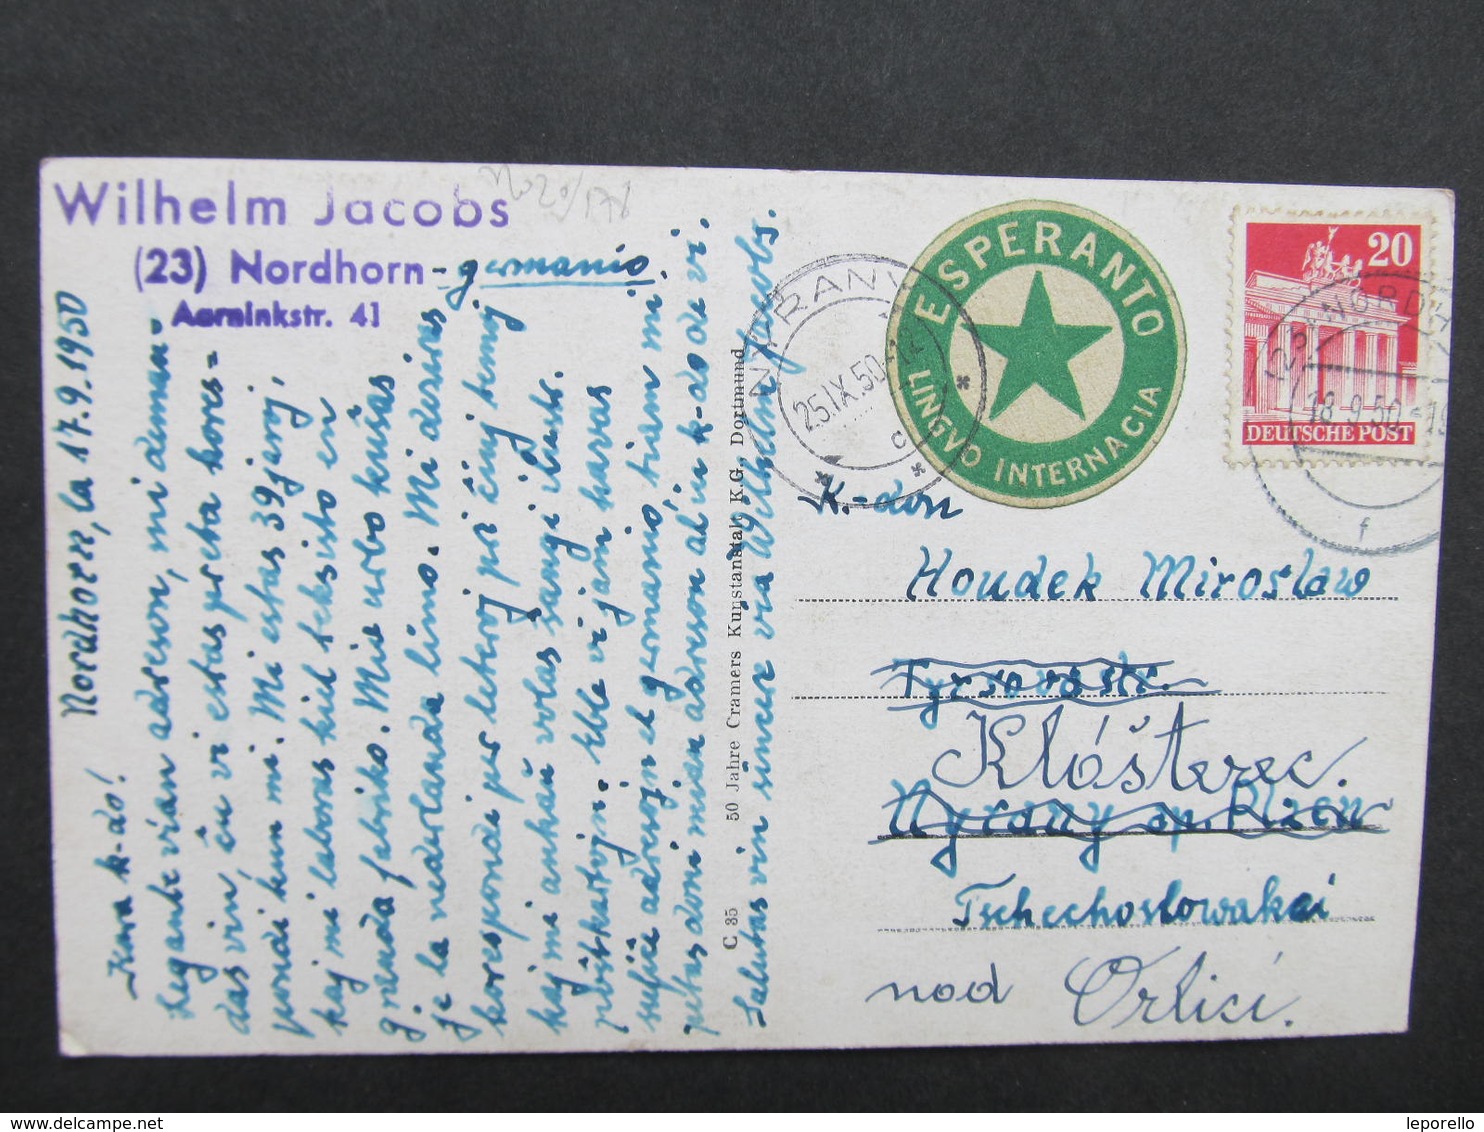 Wilhelm Jacobs
(23) Nordhorn - germanio.
Aarninkstr. 41
Nordhorn, la 17.9.1950
Kara k-do!
Legante vian adreson, mi deman-
das vin, ĉu vi estas preta kores-
pondi kun mi. Mi estas 39 jaroj,
kaj mi laboras kiel teksisto en
granda fabriko. Mia urbo kuŝas
ĉe la nederlanda limo. Mi deziras
korespondi per leteroj pri ĉiuj temoj
kaj mi ankaŭ volas sanĝi ilustr.
poŝtkartojn. Eble vi jam havas
sufiĉe adresojn el germanio, tiam mi
petas doni mian adreson al iu k-do de vi.
Salutas vin sincere via Wilhelm Jacobs.
C. 35 50 Jahre Cramers Kunstanstalt K.G., Dortmund
NÝŘANY
25.IX.50
c
ESPERANTO
LINGVO INTERNACIA
20
DEUTSCHE POST
(23) NORDH
18.9.50-19
f
K-don
Houdek Miroslaw
Tyrsova
Klášterec.
Nyrany Plzen
Tschechoslowakei
nad Orlicí.
leporello